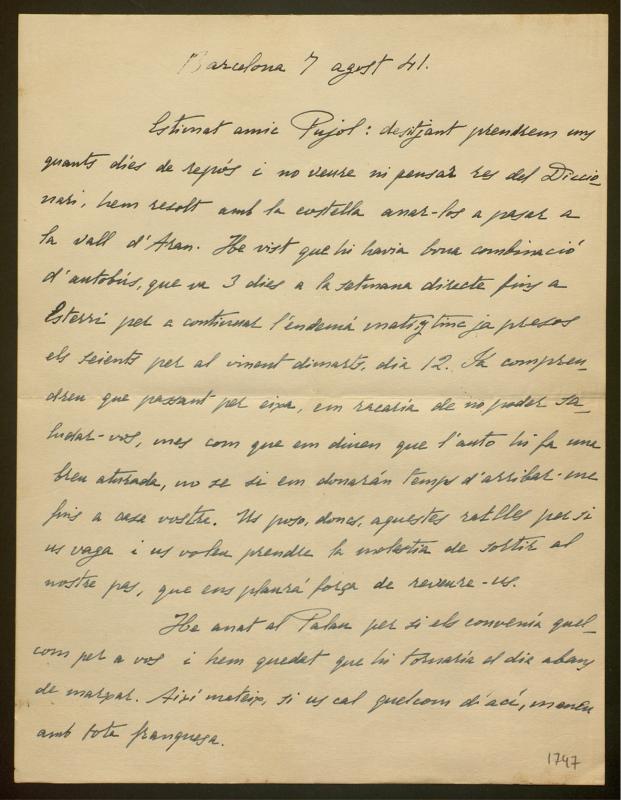 Barcelona 7 agost 41.
Estimat amic Pujol: desitjant prendrem uns
quants dies de repós i no veure ni pensar res del Diccio-
nari, hem resolt amb la costella anar-los a pasar a
la vall d'Aran. He vist que hi havia bona combinació
d'autobús, que va 3 dies a la setmana directe fins a
Esterri per a continuar l'éndemá matí y tinc ja presos
els seients per al vinent dimarts, dia 12. Ja compren-
dreu que passant per eixa, em racaria de no poder sa-
ludar-vos, mes com que em diuen que l'auto hi fa una
breu aturada, no se si em donarán temps d'arribar-me
fins a casa vostre. Us poso, doncs, aquestes ratlles per si
us vaga i us voleu prendre la molestia de sortir al
nostre pas, que ens plaurá força de reveure-us.
He anat al Palau per si els convenía quel-
com per a vos i hem quedat que hi tornaría el dia abans
de marxar. Aixi mateix, si us cal quelcom d'ací, maneu
amb tota franquesa.
1747